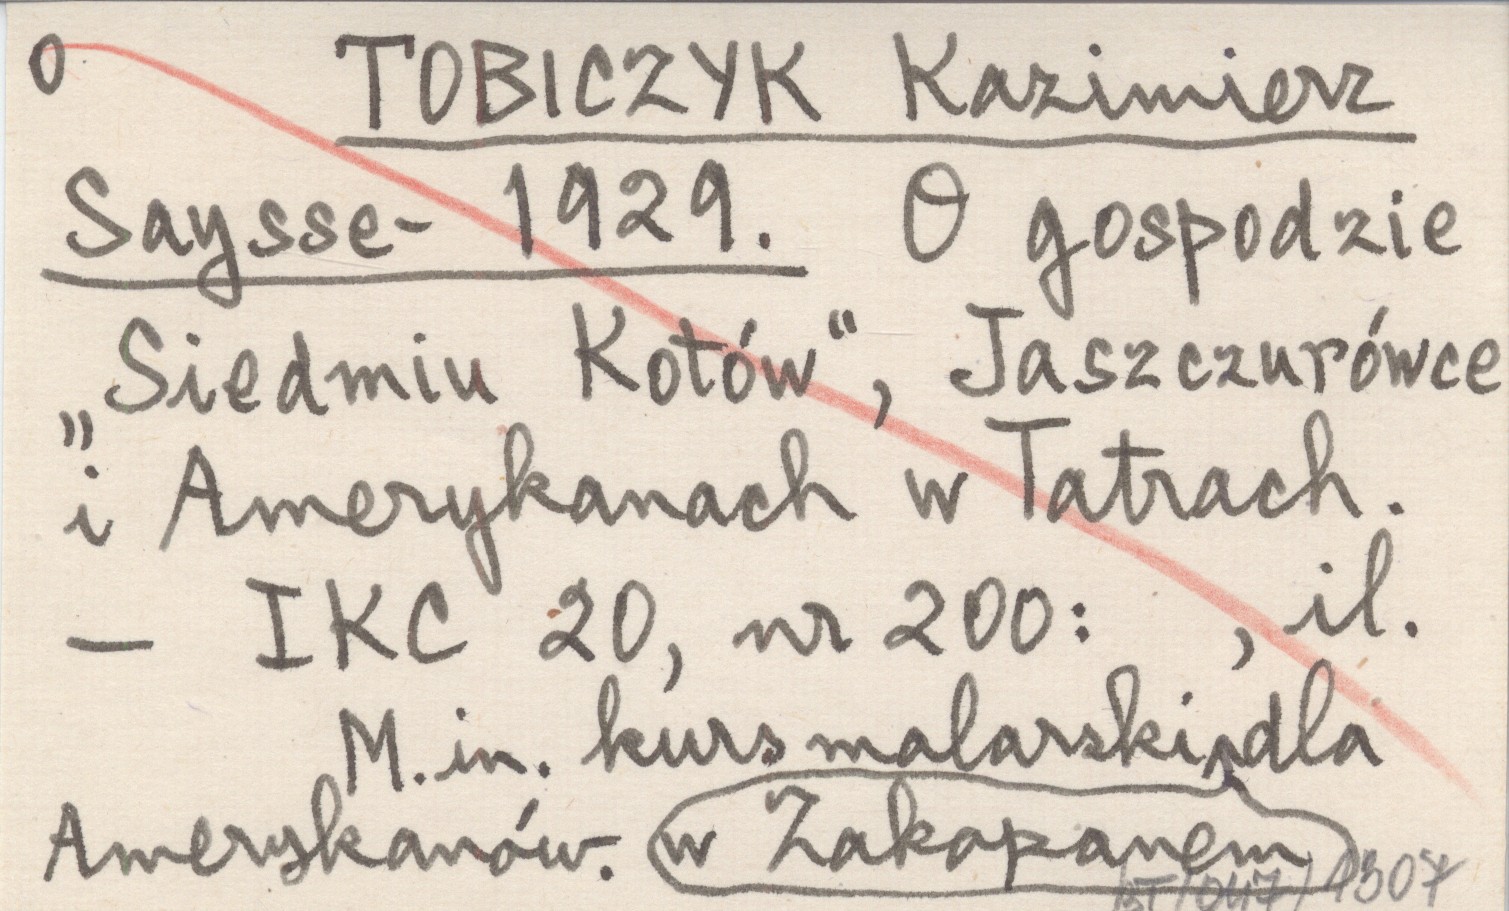 0 TOBICZYK Kazimierz
Saysse- 1929. O gospodzie
„Siedmiu Kotów“, Jaszczurówce
i Amerykanach w Tatrach.
— IKC 20, nr 200: , il.
M.in. kurs malarski dla
Amerykanów. w Zakopanem
BT/047/1307